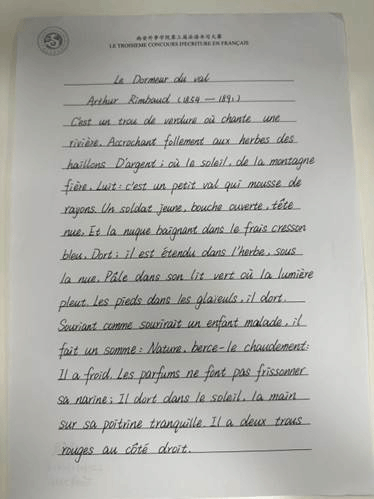 西安外事学院第三届法语书写大赛
LE TROISIEME CONCOURS D'ECRITURE EN FRANÇAIS
Le Dormeur du val
Arthur Rimbaud (1854 — 1891)
C'est un trou de verdure où chante une
rivière, Accrochant follement aux herbes des
haillons D'argent; où le soleil, de la montagne
fière, Luit: c'est un petit val qui mousse de
rayons. Un soldat jeune, bouche ouverte, tête
nue, Et la nuque baignant dans le frais cresson
bleu, Dort; il est étendu dans l'herbe, sous
la nue, Pâle dans son lit vert où la lumière
pleut. Les pieds dans les glaïeuls, il dort.
Souriant comme sourirait un enfant malade, il
fait un somme: Nature, berce-le chaudement:
Il a froid. Les parfums ne font pas frissonner
sa narine; Il dort dans le soleil, la main
sur sa poitrine tranquille. Il a deux trous
rouges au côté droit.